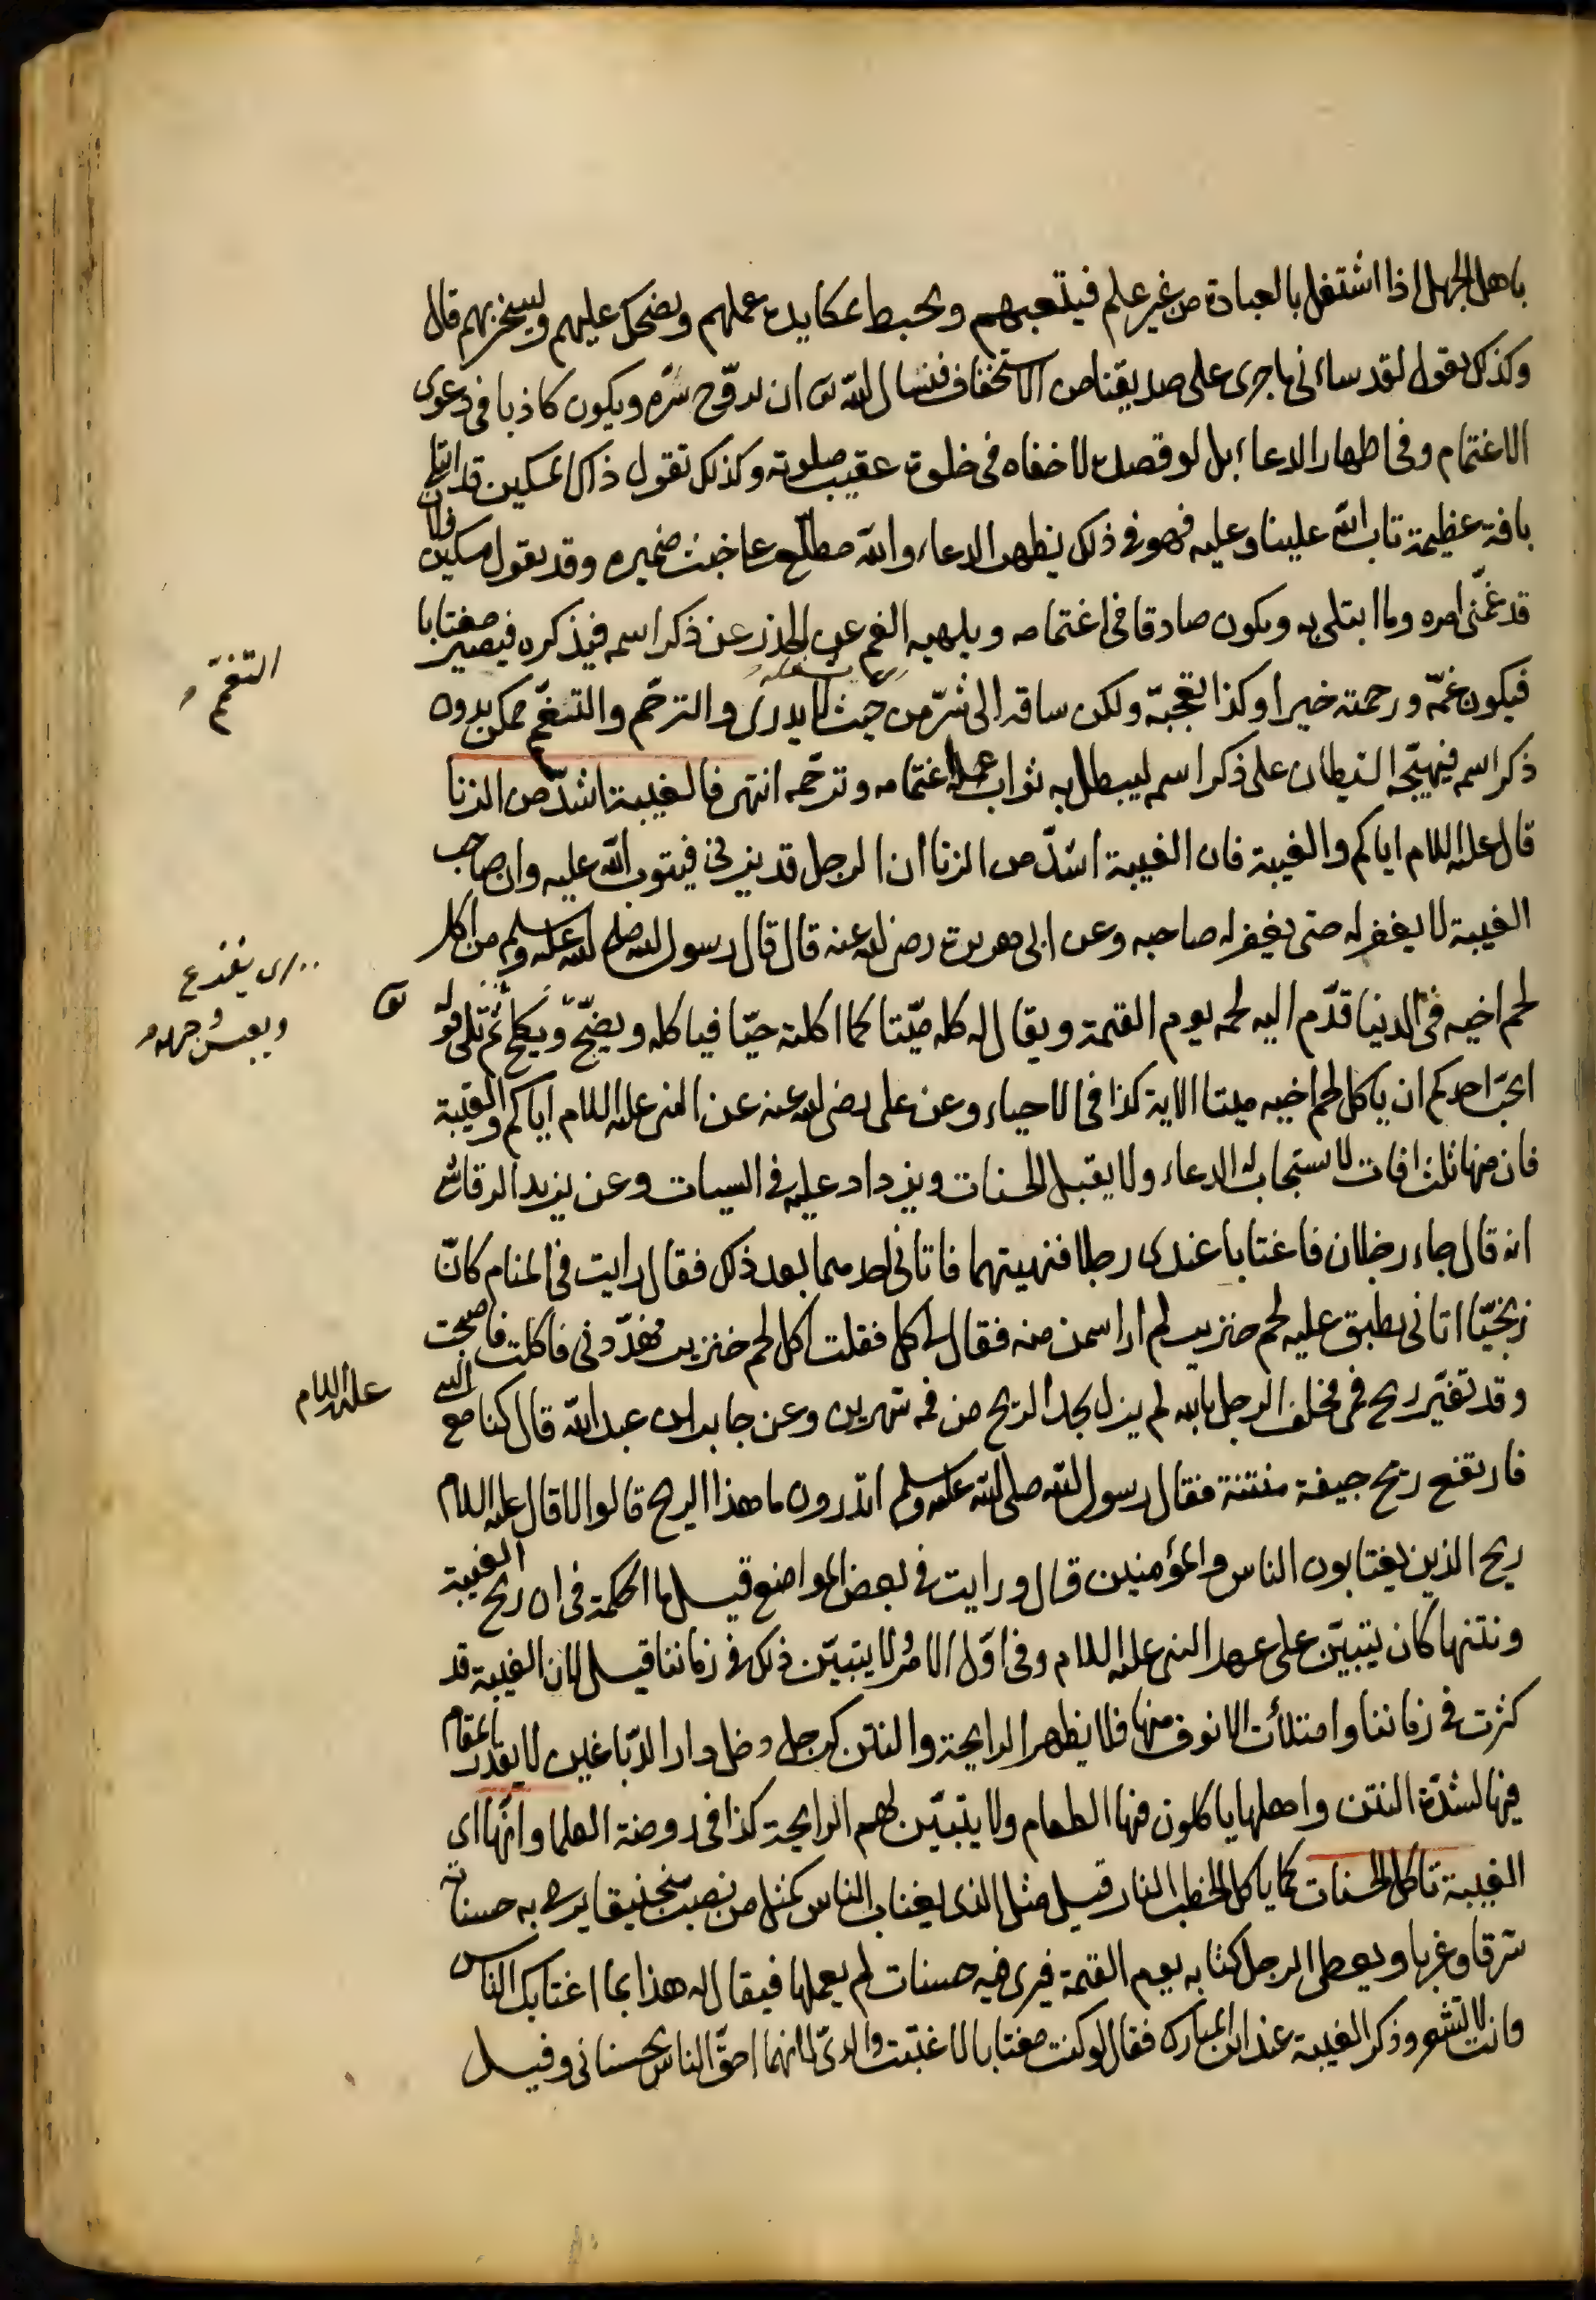 باهل الجهل اذا اشتغل بالعبادة من غير علم فيتعبهم ويحبط بمكايده عملهم ويضحك عليهم ويسخر بهم قال
وكذلك يقول لقد ساءنى ما جرى على صديقنا من الاستخفاف فنسال الله تعا ان يروّح سرّه ويكون كاذبا فى دعوى
الاغتمام وفى اظهار الدعاء بل لو قصده لاخفاه فى خلوة عقيب صلوته وكذلك تقول ذاك المسكين قد ابتلى
بافة عظيمة تاب الله علينا وعليه فهو فى ذلك يظهر الدعاء والله مطلع على خبث ضميره وقد يقول مسكين فلان
قد غمّنى امره وما ابتلى به ويكون صادقا فى اغتمامه ويلهيه الغم عن الحذر عن ذكر اسمه فيذكره فيصير مغتابا
فيكون غمّه ورحمته خيرا وكذا تعجبه ولكن ساقه الى شرّ من حيث لا يدرى والترحّم والتغمّم ممكن بدون
التغمّم
ذكر اسمه فيهيّجه الشيطان على ذكر اسمه ليبطل به ثواب اغتمامه وترحّمه انتهى فالغيبة اشدّ من الزنا
قال عليه السلام اياكم والغيبة فان الغيبة اشدّ من الزنا ان الرجل قد يزنى فيتوب الله عليه وان صاحب
الغيبة لا يغفر له حتى يغفر له صاحبه وعن ابى هريرة رضى الله عنه قال قال رسول الله صلى الله عليه وسلم من اكل
لحم اخيه فى الدنيا قدّم اليه لحمه يوم القيمة ويقال له كله ميّتا كما اكلته حيّا فياكله ويضجّ ويكلح ثم تلى قوله
ويعبس وجهه
ايحبّ احدكم ان ياكل لحم اخيه ميتا الاية كذا فى الاحياء وعن على رضى الله عنه عن النبى عليه السلام اياكم والغيبة
فان منها ثلث افات لا يستجاب له الدعاء ولا يقبل الحسنات ويزداد عليه فى السيات وعن يزيد الرقاشى
انه قال جاء رجلان فاغتابا عندى رجلا فنهيتهما فاتانى احدهما بعد ذلك فقال رايت فى المنام كانّ
زنجيّا اتانى بطبق عليه لحم خنزير لم ار اسمن منه فقال لى كل فقلت اكل لحم خنزير فهدّدنى فاكلت فاصبحت
وقد تغيّر ريح فمى فحلف الرجل بالله لم يزل يجد الريح من فمه شهرين وعن جابر ابن عبد الله قال كنا مع النبى
عليه السلام
فارتفع ريح جيفة منتنة فقال رسول الله صلى الله عليه وسلم اتدرون ما هذا الريح قالوا لا قال عليه السلام
ريح الذين يغتابون الناس والمؤمنين قال ورايت فى بعض المواضع قيل ما الحكمة فى ان ريح الغيبة
ونتنها كان يتبيّن على عهد النبى عليه السلام وفى اوّل الامر ولا يتبيّن ذلك فى زماننا قيل لان الغيبة قد
كثرت فى زماننا وامتلأت الانوف منها فلا يظهر الرايحة والنتن كرجل دخل دار الدبّاغين لا يقدر المقام
فيها لشدّة النتن واهلها ياكلون فيها الطعام ولا يتبيّن لهم الرايحة كذا فى روضة العلما وانها اى
الغيبة تاكل الحسنات كما ياكل الحطب النار قيل مثل الذى يغتاب الناس كمثل من نصب منجنيقا يرمى به حسناته
شرقا وغربا ويعطى الرجل كتابه يوم القيمة فيرى فيه حسنات لم يعملها فيقال له هذا بما اغتابك الناس
وانت لا تشعر وذكر الغيبة عند ابن المبارك فقال لو كنت مغتابا لاغتبت والدىّ لانهما احقّ الناس بحسناتى وقيل